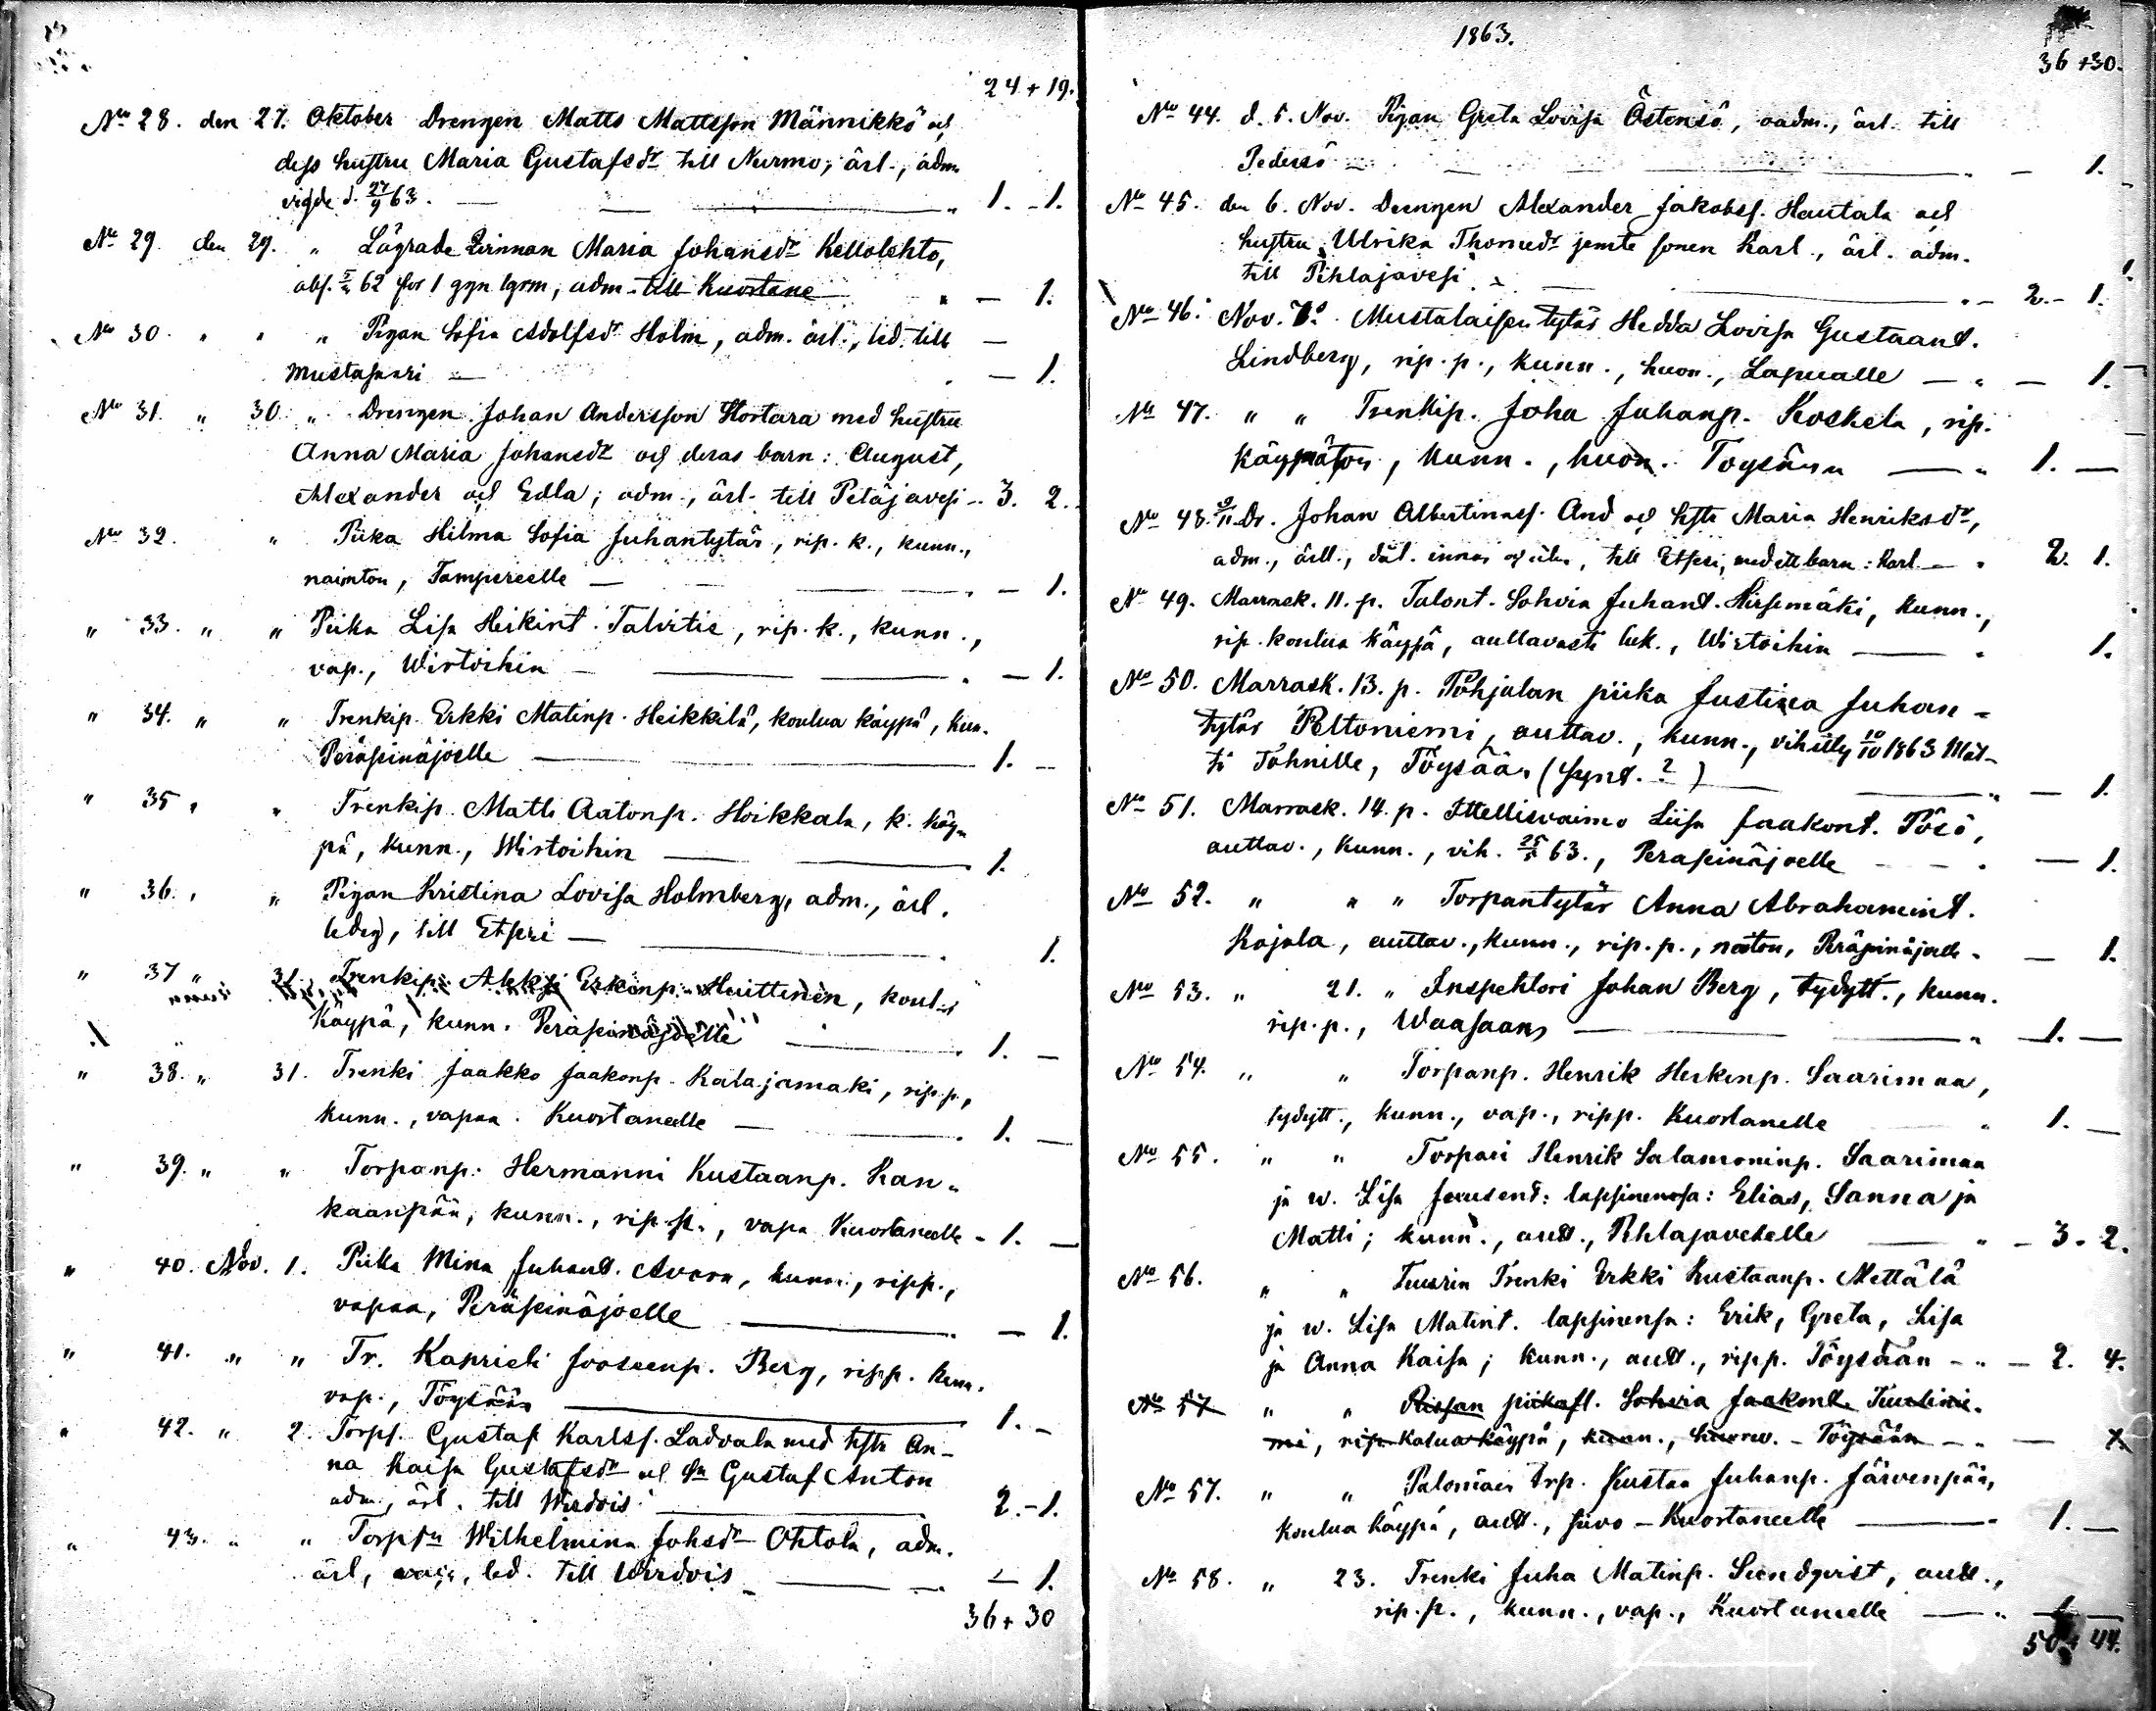 24 + 19.
No 28. den 27. Oktober Drengen Matts Mattsson Männikkö och
dess hustru Maria Gustafsdr till Nurmo, ärl., adm.
vigde d. 27/9 63. — 1. - 1.
No 29. den 29. " Lägrade Qvinnan Maria Johansdr Kellolehto,
abs. 62 för 1 ggn lgrm, adm. till Kuortane " — 1.
No 30. " " " Pigan Sofia Adolfsdr Holm, adm. ärl., led. till —
Mustasaari — 1.
No 31. " 30. " Drengen Johan Andersson Hortara med hustru
Anna Maria Johansdr och deras barn: August,
Alexander och Edla; adm., ärl. till Petäjävesi - 3. 2.
No 32. " Piika Hilma Sofia Juhantytär, rip. k., kunn.,
naimton, Tampereelle — 1.
" 33. " " Piika Lisa Heikint. Talvitie, rip. k., kunn.,
vap., Wirtoihin — 1.
" 34. " " Trenkip. Erkki Matinp. Heikkilä, koulua käypä, kun.
Peräseinäjoelle — 1. —
" 35 " " Trenkip. Matti Aatonp. Hoikkala, k. käy-
pä, kunn., Wirtoihin — 1.
" 36. " " Pigan Kristina Lovisa Holmberg, adm., ärl.
ledig, till Etseri — 1.
" 37 " 31. Trenkip. Aleksi Erkinp. Huittinen, koul-
käypä, kunn. Peräseinäjoelle — 1. —
" 38. " 31. Trenki Jaakko Jaakonp. Kalajamaki, rip. p.,
kunn., vapaa. Kuortaneelle — 1. —
" 39. " " Torpanp. Hermanni Kustaanp. Kan-
kaanpää, kunn., rip. p., vapa Kuortaneelle - 1. —
" 40. Nov. 1. Piika Mina Juhant. Avera, kunn., ripp.,
vapaa, Peräseinäjoelle — 1.
" 41. " " Tr. Kaprieli Jooseenp. Berg, ripp. kunn.
vap., Töysään — 1. -
" 42. " 2. Torps. Gustaf Karlsf. Ladvala med hstr An-
na Kaisa Gustafsdr och Sn Gustaf Anton
adm., ärl. till Wirdois — 2. - 1.
" 43. " " Torpsn Wilhelmina Johsdr Ohtola, adm.
ärl, led. till Wirdois — 1.
36 + 30
1863.
36 + 30.
No 44. d. 5. Nov. Pigan Greta Lovisa Östensö, oadm., ärl. till
Pedersö — 1.
No 45. den 6. Nov. Drengen Alexander Jakobsf. Hautala och
hustru Ulrika Thomedr jemte sonen Karl., ärl. adm.
till Pihlajavesi — 2. - 1.
No 46. Nov. 7. Mustalaisen tytär Hedda Lovisa Gustaant.
Lindberg, rip. p., kunn., huon., Lapualle — " — 1.
No 47. " " Trenkip. Joha Juhanp. Koskela, rip.
käypätön, kunn., huon. Töysään — " 1. —
No 48. 9/11 Dr. Johan Albertinasf. And och hstr Maria Henriksdr,
adm., ärll., dål. innan, till Etseri, med ett barn: Karl — " 2. 1.
No 49. Marrask. 11. p. Talont. Sohvia Juhant. Hirsimäki, kunn.,
rip. koulua käypä, auttavasti luk., Wirtoihin — " 1.
No 50. Marrask. 13. p. Pohjalan piika Justina Juhan-
tytär Peltoniemi, auttav., kunn., vihitty 10/10 1863 Mat-
ti Tohnille, Töysään (synt. ?) — " — 1.
No 51. Marrask. 14. p. Ittellisvaimo Liisa Jaakont. Pösö,
auttav., kunn., vih. 63., Peraseinäjoelle - - " — 1.
No 52. " " " Torpantytär Anna Abrahamint.
Kojola, auttav., kunn., rip. p., naiton, Peräseinäjoelle - — 1.
No 53. " 21. " Inspehtori Johan Berg, tydytt., kunn.
rip. p., Waasaan — " 1. —
No 54. " " Torpanp. Henrik Heikinp. Saarimaa,
tydytt., kunn., vap., ripp. Kuortanelle " 1. —
No 55. " " Torpari Henrik Salamoninp. Saarimaa
ja w. Lisa Juusent: lapsinensa: Elias, Sanna ja
Matti; kunn., autt., Pihlajavetelle — " - 3. 2.
No 56. " " Tuurin Trenki Erkki Kustaanp. Mettälä
ja w. Lisa Matint. lapsinensa: Erik, Greta, Lisa
ja Anna Kaisa; kunn., autt., ripp. Töysään - " - 2. 4.
No 57 " " Rissan piikafl. Sohvia Jaakont. Tuulinie-
mi, rip. Kolua käypä, kunn., huorw. - Töysään - " —
No 57. " " Palomäen trp. Kustaa Juhanp. Järvenpää,
koulua käypä, autt., Kuortaneelle — 1. —
No 58. " 23. Trenki Juha Matinp. Sundqvist, autt.,
rip. p., kunn., vap., Kuortaneelle — " 1 —
50 + 44.